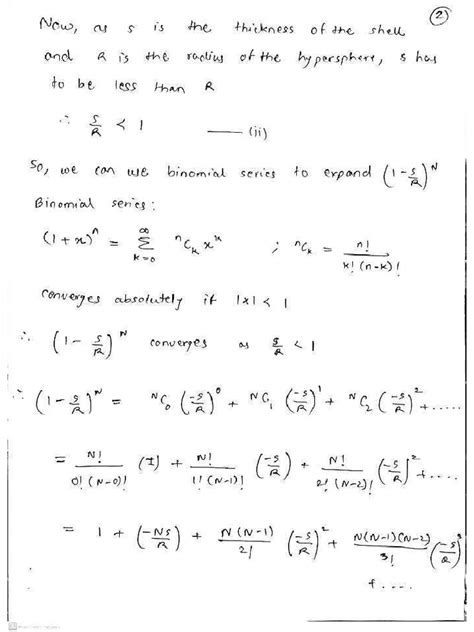 (2)
Now, as s is the thickness of the shell
and R is the radius of the hypersphere, s has
to be less than R
∴ s/R < 1 —— (ii)
So, we can use binomial series to expand (1 - s/R)^N
Binomial series:
(1+x)^n = Σ_{k=0}^{∞} ^nC_k x^k ; ^nC_k = n!/(k!(n-k)!)
converges absolutely if |x| < 1
∴ (1 - s/R)^N converges as s/R < 1
∴ (1 - s/R)^N = ^NC_0 (-s/R)^0 + ^NC_1 (-s/R)^1 + ^NC_2 (-s/R)^2 + .....
= N!/(0!(N-0)!) (1) + N!/(1!(N-1)!) (-s/R) + N!/(2!(N-2)!) (-s/R)^2 + ....
= 1 + (-Ns/R) + N(N-1)/2! (-s/R)^2 + N(N-1)(N-2)/3! (-s/R)^3
+ ....